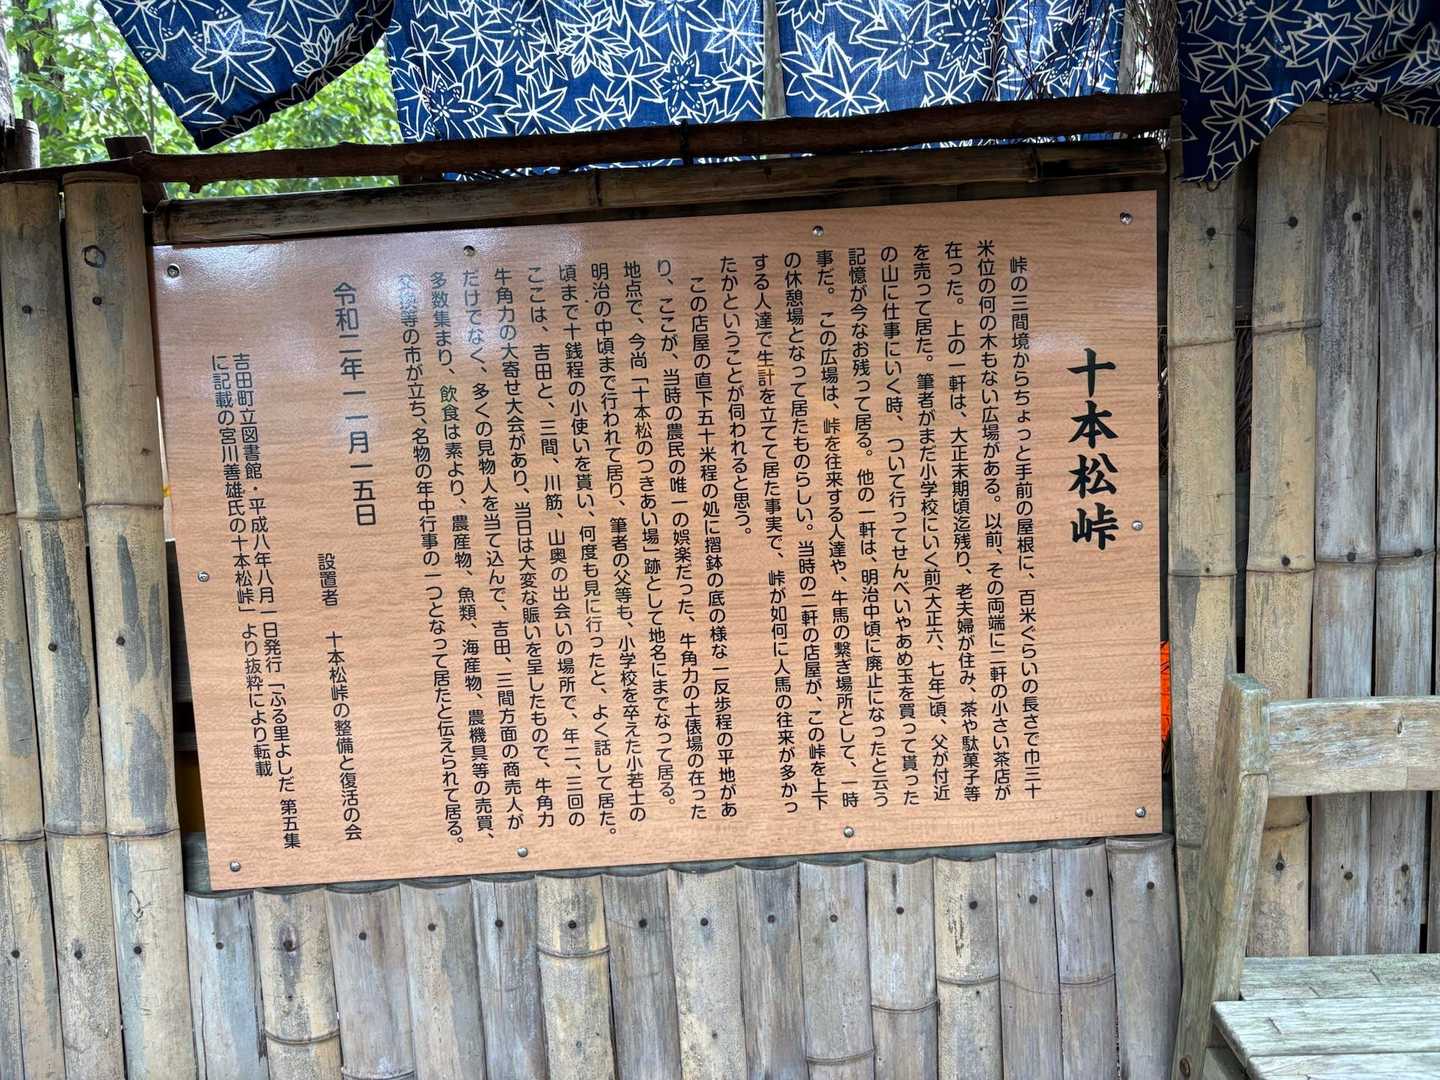 十本松峠
峠の三間境からちょっと手前の屋根に、百米ぐらいの長さで巾三十
米位の何の木もない広場がある。以前、その両端に二軒の小さい茶店が
在った。上の一軒は、大正末期頃迄残り、老夫婦が住み、茶や駄菓子等
を売って居た。筆者がまだ小学校にいく前(大正六、七年)頃、父が付近
の山に仕事にいく時、ついて行ってせんべいやあめ玉を買って貰った
記憶が今なお残って居る。他の一軒は、明治中頃に廃止になったと云う
事だ。この広場は、峠を往来する人達や、牛馬の繋ぎ場所として、一時
の休憩場となって居たものらしい。当時の二軒の店屋が、この峠を上下
する人達で生計を立てて居た事実で、峠が如何に人馬の往来が多かっ
たかということが伺われると思う。
この店屋の直下五十米程の処に摺鉢の底の様な一反歩程の平地があ
り、ここが、当時の農民の唯一の娯楽だった、牛角力の土俵場の在った
地点で、今尚「十本松のつきあい場」跡として地名にまでなって居る。
明治の中頃まで行われて居り、筆者の父等も、小学校を卒えた小若士の
頃まで十銭程の小使いを貰い、何度も見に行ったと、よく話して居た。
ここは、吉田と、三間、川筋、山奥の出会いの場所で、年二、三回の
牛角力の大寄せ大会があり、当日は大変な賑いを呈したもので、牛角力
だけでなく、多くの見物人を当て込んで、吉田、三間方面の商売人が
多数集まり、飲食は素より、農産物、魚類、海産物、農機具等の売買、
交換等の市が立ち、名物の年中行事の一つとなって居たと伝えられて居る。
令和二年一一月一五日
設置者　十本松峠の整備と復活の会
吉田町立図書館・平成八年八月一日発行「ふる里よしだ 第五集
に記載の宮川善雄氏の十本松峠」より抜粋により転載